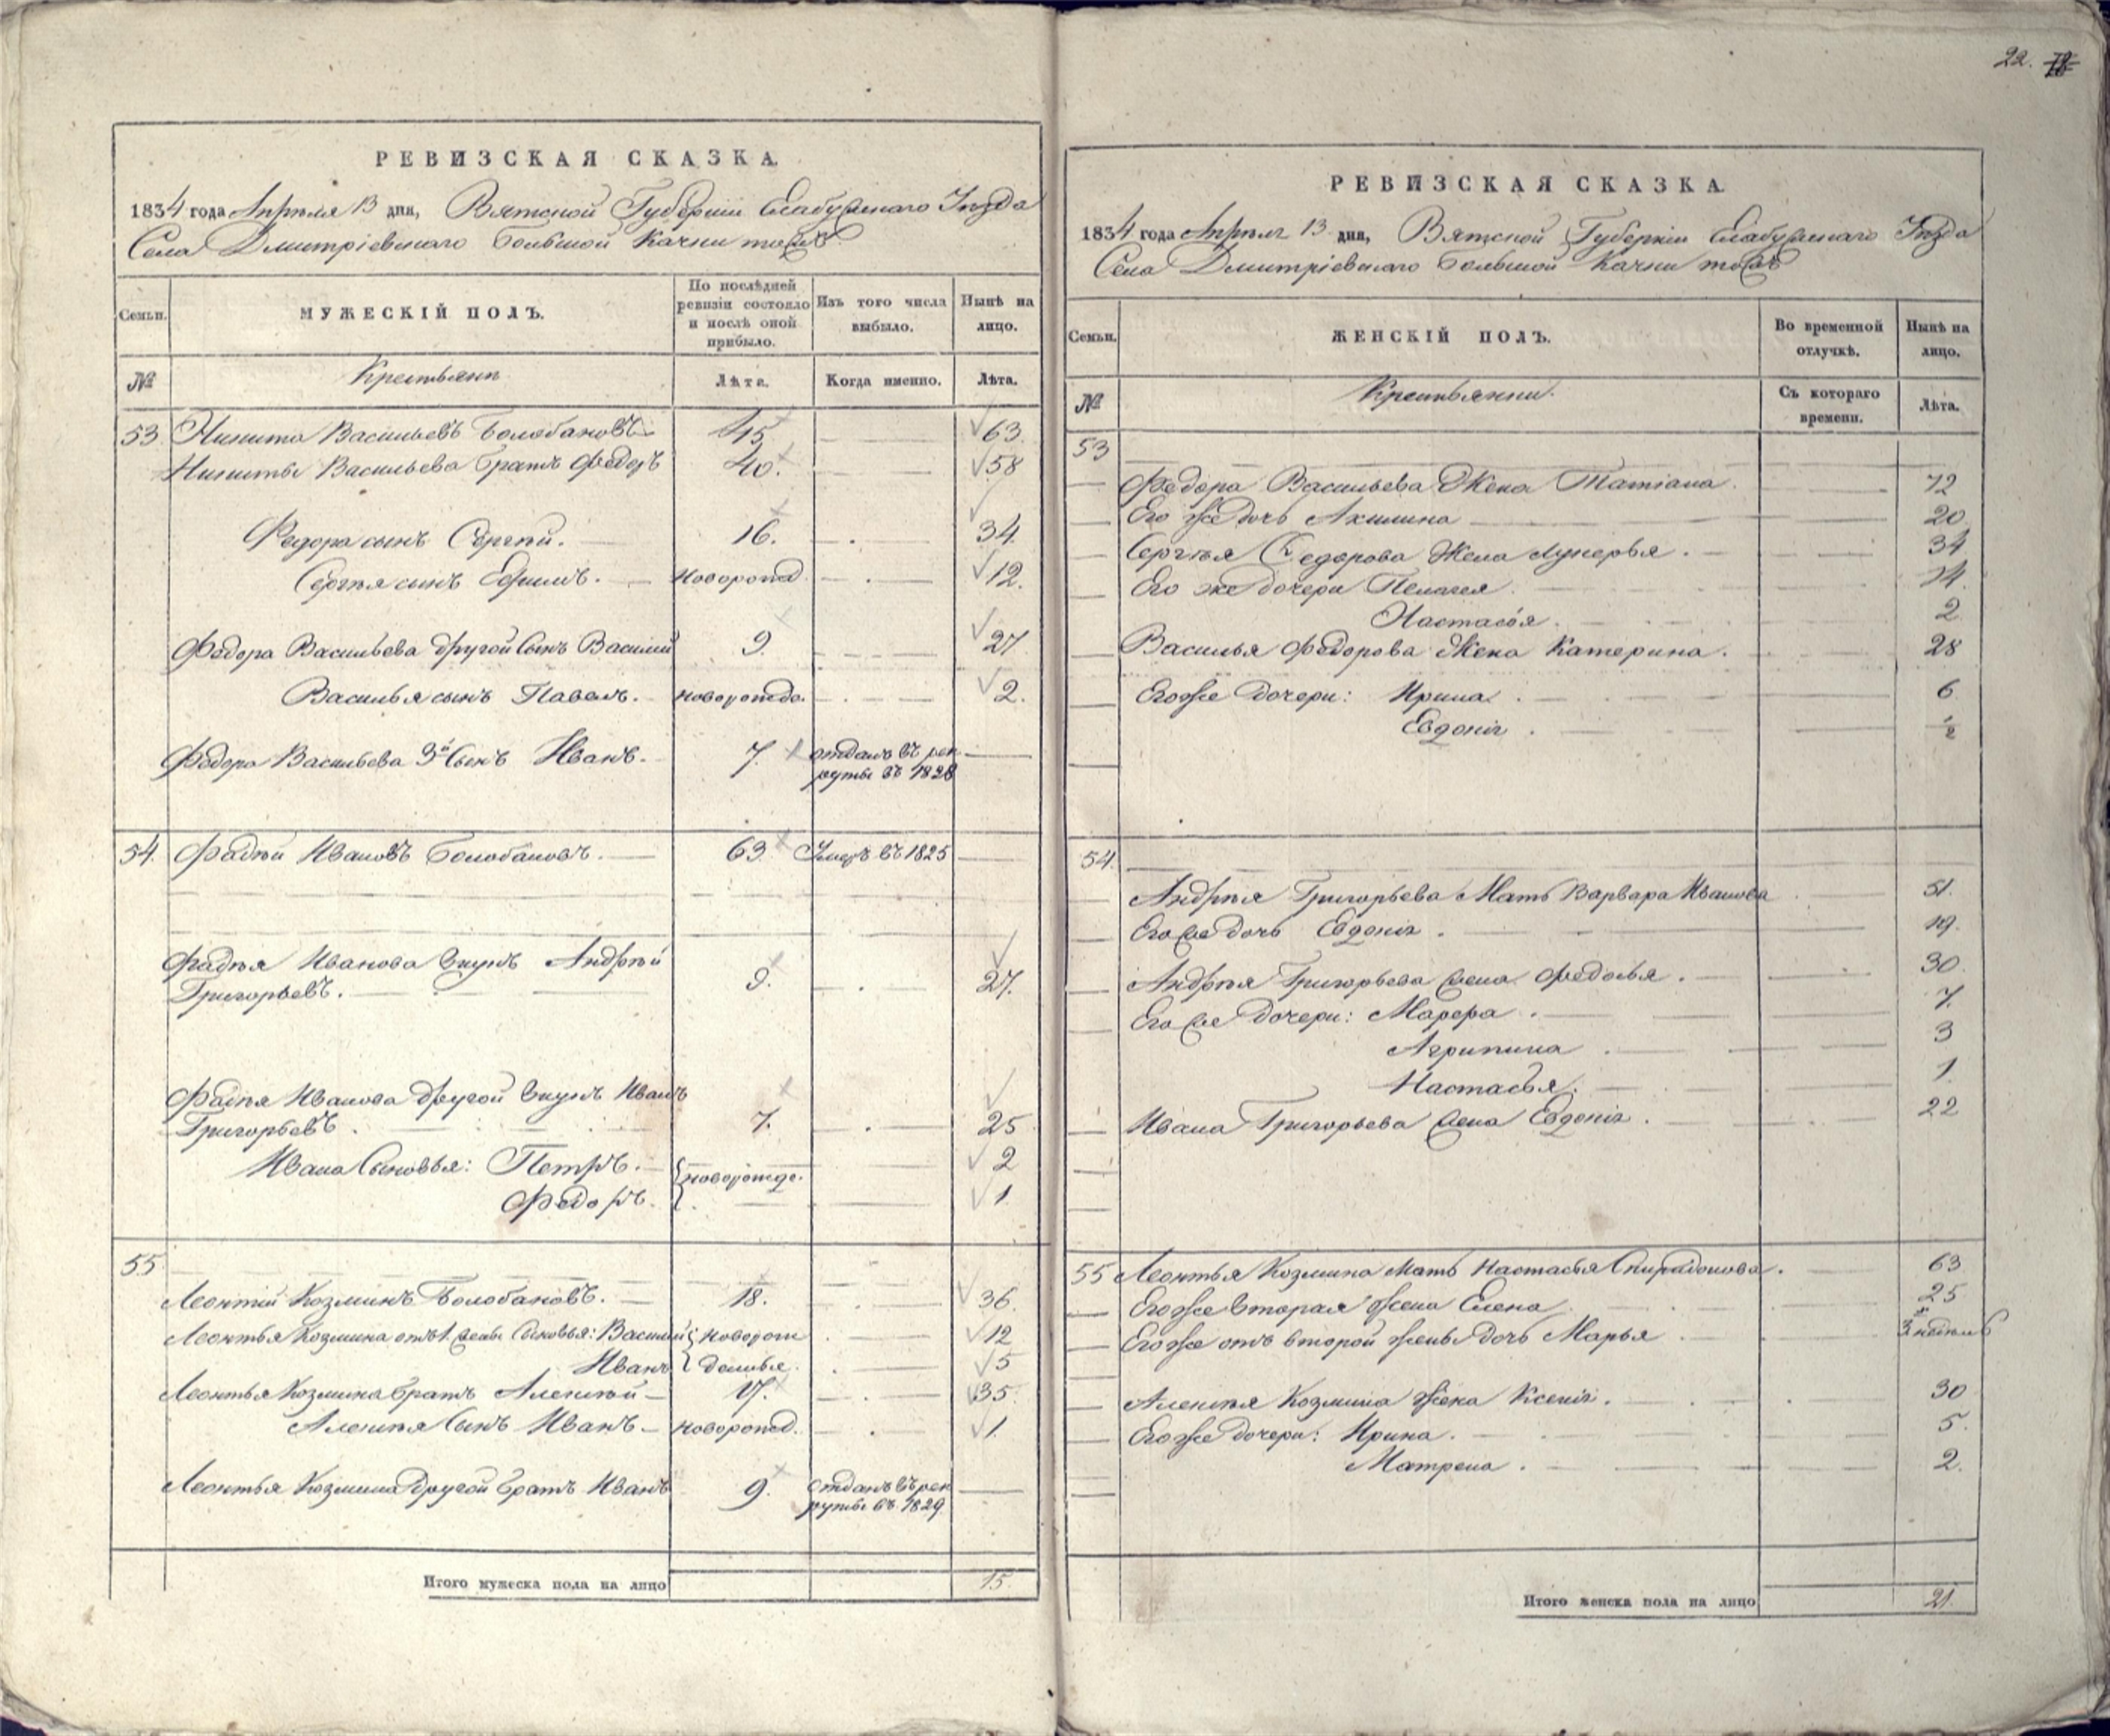 22.
РЕВИЗСКАЯ СКАЗКА.
1834 года Апреля 13 дня, Вятской Губернии Елабужскаго Уезда
Села Дмитріевскаго Большой Качки тожъ
Семьи.
МУЖЕСКІЙ ПОЛЪ.
По послѣдней ревизіи состояло и послѣ оной прибыло.
Изъ того числа выбыло.
Нынѣ на лицо.
№
Крестьяне
Лѣта.
Когда именно.
Лѣта.
53 Никита Васильевъ Болобановъ 45 63.
Никиты Васильева братъ Федоръ 40. 58
Федора сынъ Сергѣй. 16. 34
Сергѣя сынъ Ефимъ. новорожд. 12.
Федора Васильева другой сынъ Василий 9. 27
Василья сынъ Павелъ. новорожде. 2.
Федора Васильева 3й сынъ Иванъ. 7. отданъ въ рек
руты въ 1828
54. Фадѣй Ивановъ Болобановъ. 63. Умеръ въ 1825
Фадѣя Иванова внукъ Андрѣй
Григорьевъ. 9. 27.
Фадѣя Иванова другой внукъ Иванъ
Григорьевъ. 7. 25
Ивана сыновья: Петръ. новорожде. 2
Федоръ. 1
55
Леонтій Козминъ Болобановъ. 18. 36.
Леонтья Козмина отъ 1 жены сыновья: Василий новорож 12
Иванъ денные. 5
Леонтья Козмина братъ Алексѣй 17. 35.
Алексѣя сынъ Иванъ новорожд. 1
Леонтья Козмина другой братъ Иванъ 9. отданъ въ рек
руты въ 1829
Итого мужеска пола на лицо 15.
РЕВИЗСКАЯ СКАЗКА.
1834 года Апреля 13 дня, Вятской Губерніи Елабужскаго Уезда
Села Дмитріевскаго Большой Качки тожъ
Семьи.
ЖЕНСКІЙ ПОЛЪ.
Во временной отлучкѣ.
Нынѣ на лицо.
№
Крестьянки.
Съ котораго времени.
Лѣта.
53
Федора Васильева Жена Татіана. 72
Его же дочь Акилина 20
Сергѣя Федорова Жена Лукерья. 34
Его же дочери Пелагея. 14.
Настасья. 2
Василья Федорова Жена Катерина. 28
Егоже дочери: Ирина. 6
Евдокія. 1/2
54.
Андрѣя Григорьева Мать Варвара Иванова 51.
Егоже дочь Евдокія. 19.
Андрѣя Григорьева жена Федосья. 30
Егоже дочери: Марфа. 7.
Агрипина. 3
Настасья. 1.
Ивана Григорьева жена Евдокія. 22
55 Леонтья Козмина мать Настасья Спиридонова. 63
Егоже вторая жена Елена 25
Егоже отъ второй жены дочь Марья 3 недѣль
Алексѣя Козмина жена Ксенія. 30
Егоже дочери: Ирина. 5.
Матрена. 2.
Итого женска пола на лицо 21.